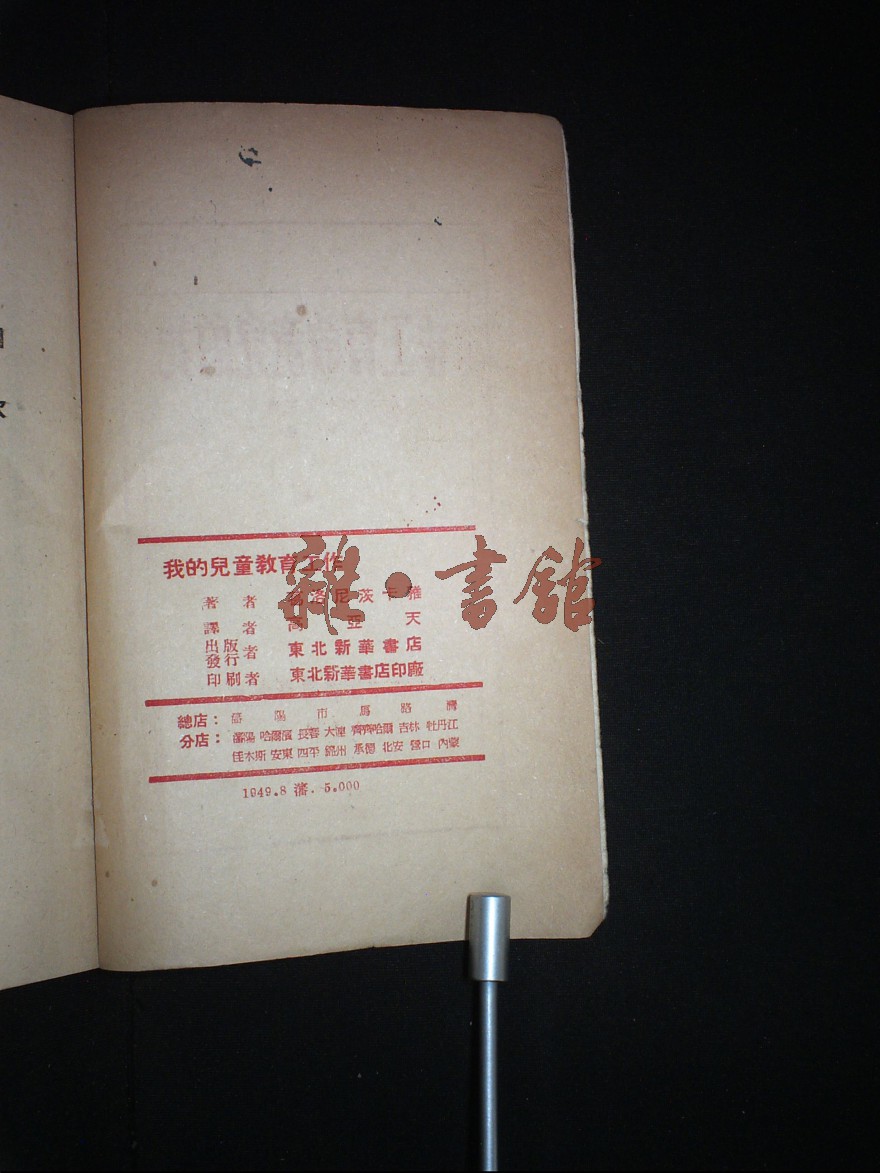 我的兒童教育工作
著者 洛尼茨卡雅
譯者 高亞天
出版
發行者 東北新華書店
印刷者 東北新華書店印廠
總店：瀋陽市馬路灣
分店：瀋陽 哈爾濱 長春 大連 齊齊哈爾 吉林 牡丹江
佳木斯 安東 四平 錦州 承德 北安 營口 內蒙
1949.8 瀋. 5.000
雜·書館